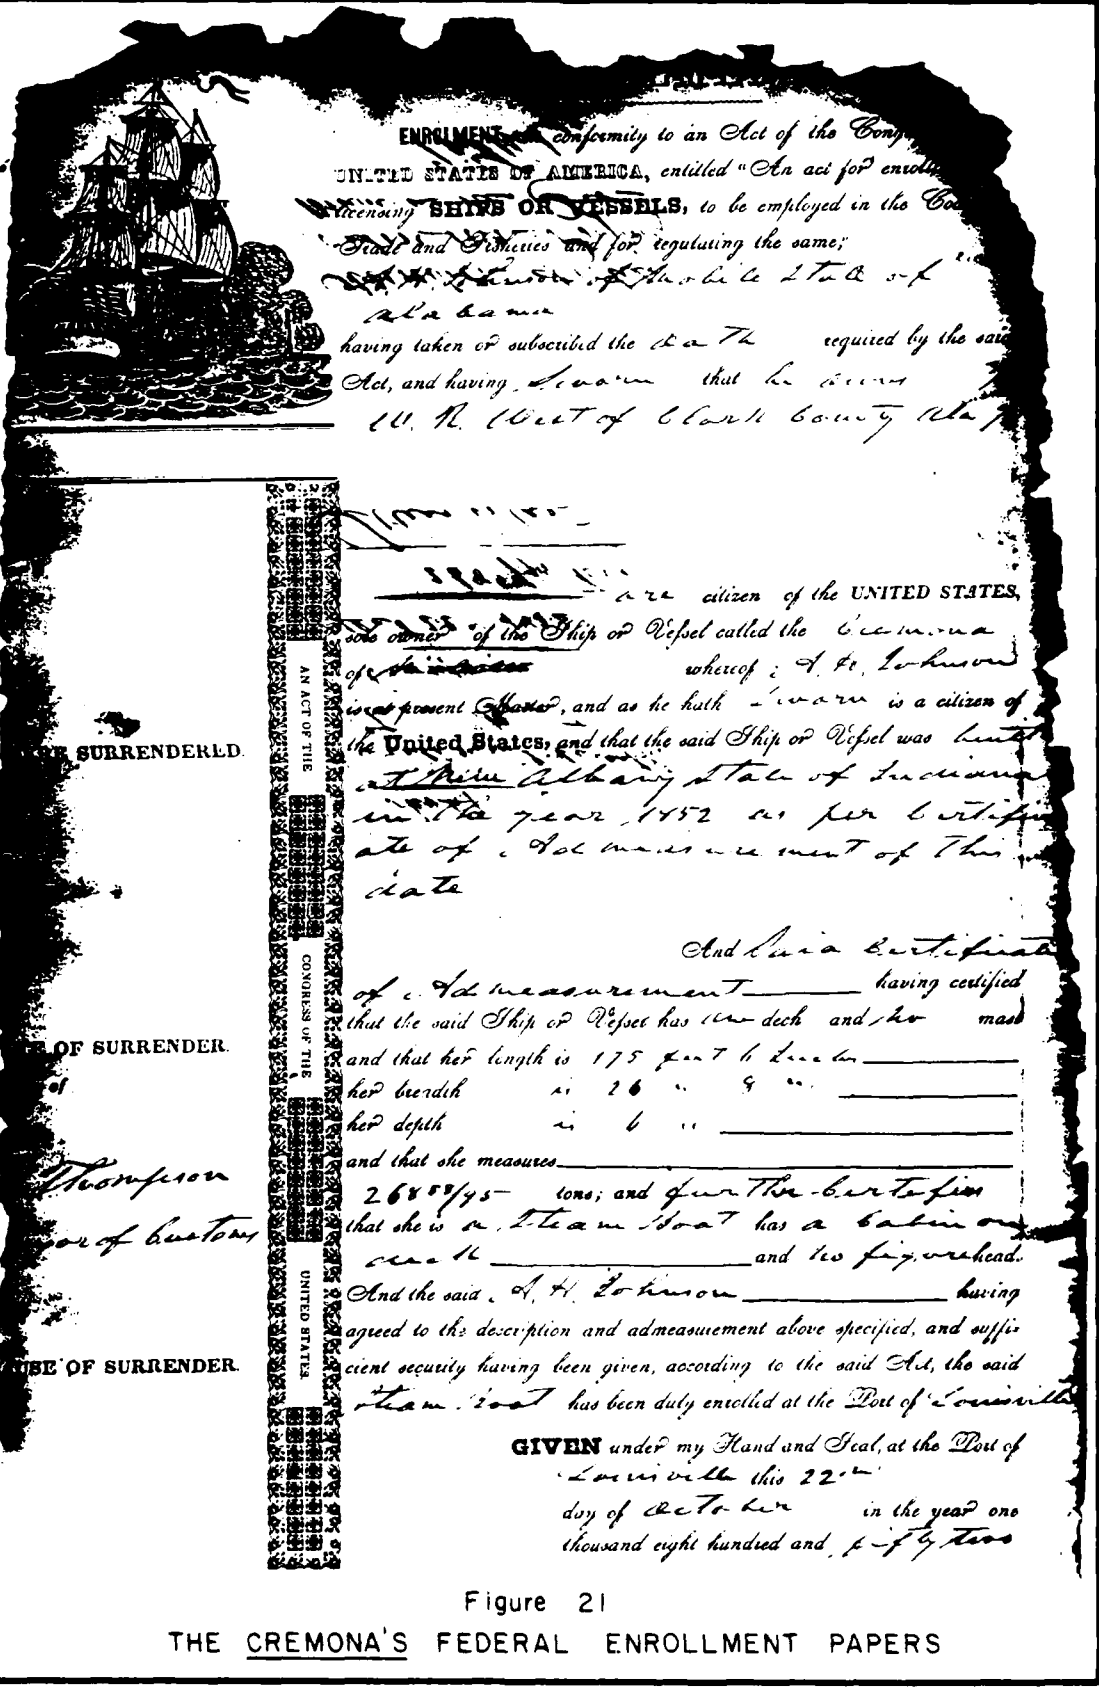 ENROLMENT in conformity to an Act of the Cong
UNITED STATES OF AMERICA, entitled "An act for enroll
licensing SHIPS OR VESSELS, to be employed in the Coa
Trade and Fisheries and for regulating the same;"
A. H. Johnson of Mobile State of
Alabama
having taken or subscribed the oath required by the said
Act, and having Sworn that he owns
W. R. West of Clark County Ala
are citizen of the UNITED STATES,
sole owner of the Ship or Vessel called the Cremona
of whereof A. H. Johnson
is at present Master, and as he hath Sworn is a citizen of
the United States, and that the said Ship or Vessel was built
at New Albany State of Indiana
in the year 1852 as per Certific
ate of Admeasurement of This
date
And Said Certificate
of Admeasurement having certified
that the said Ship or Vessel has one deck and no mast
and that her length is 175 feet 6 Inches
her breadth is 26 " 8 "
her depth is 6 "
and that she measures
268 /95 tons; and further Certifies
that she is a Steam Boat has a Cabin on
deck and no figurehead.
And the said A. H. Johnson having
agreed to the description and admeasurement above specified, and suffi-
cient security having been given, according to the said Act, the said
Steam Boat has been duly enrolled at the Port of Louisville
GIVEN under my Hand and Seal, at the Port of
Louisville this 22nd
day of October in the year one
thousand eight hundred and fifty two
RE SURRENDERED.
OF SURRENDER.
of
Thompson
or of Customs
SE OF SURRENDER.
AN ACT OF THE
CONGRESS OF THE
UNITED STATES.
Figure 21
THE CREMONA'S FEDERAL ENROLLMENT PAPERS